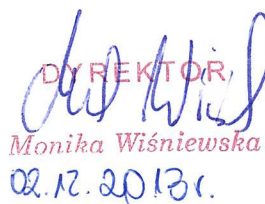 DYREKTOR
Monika Wiśniewska
02.12.2013r.